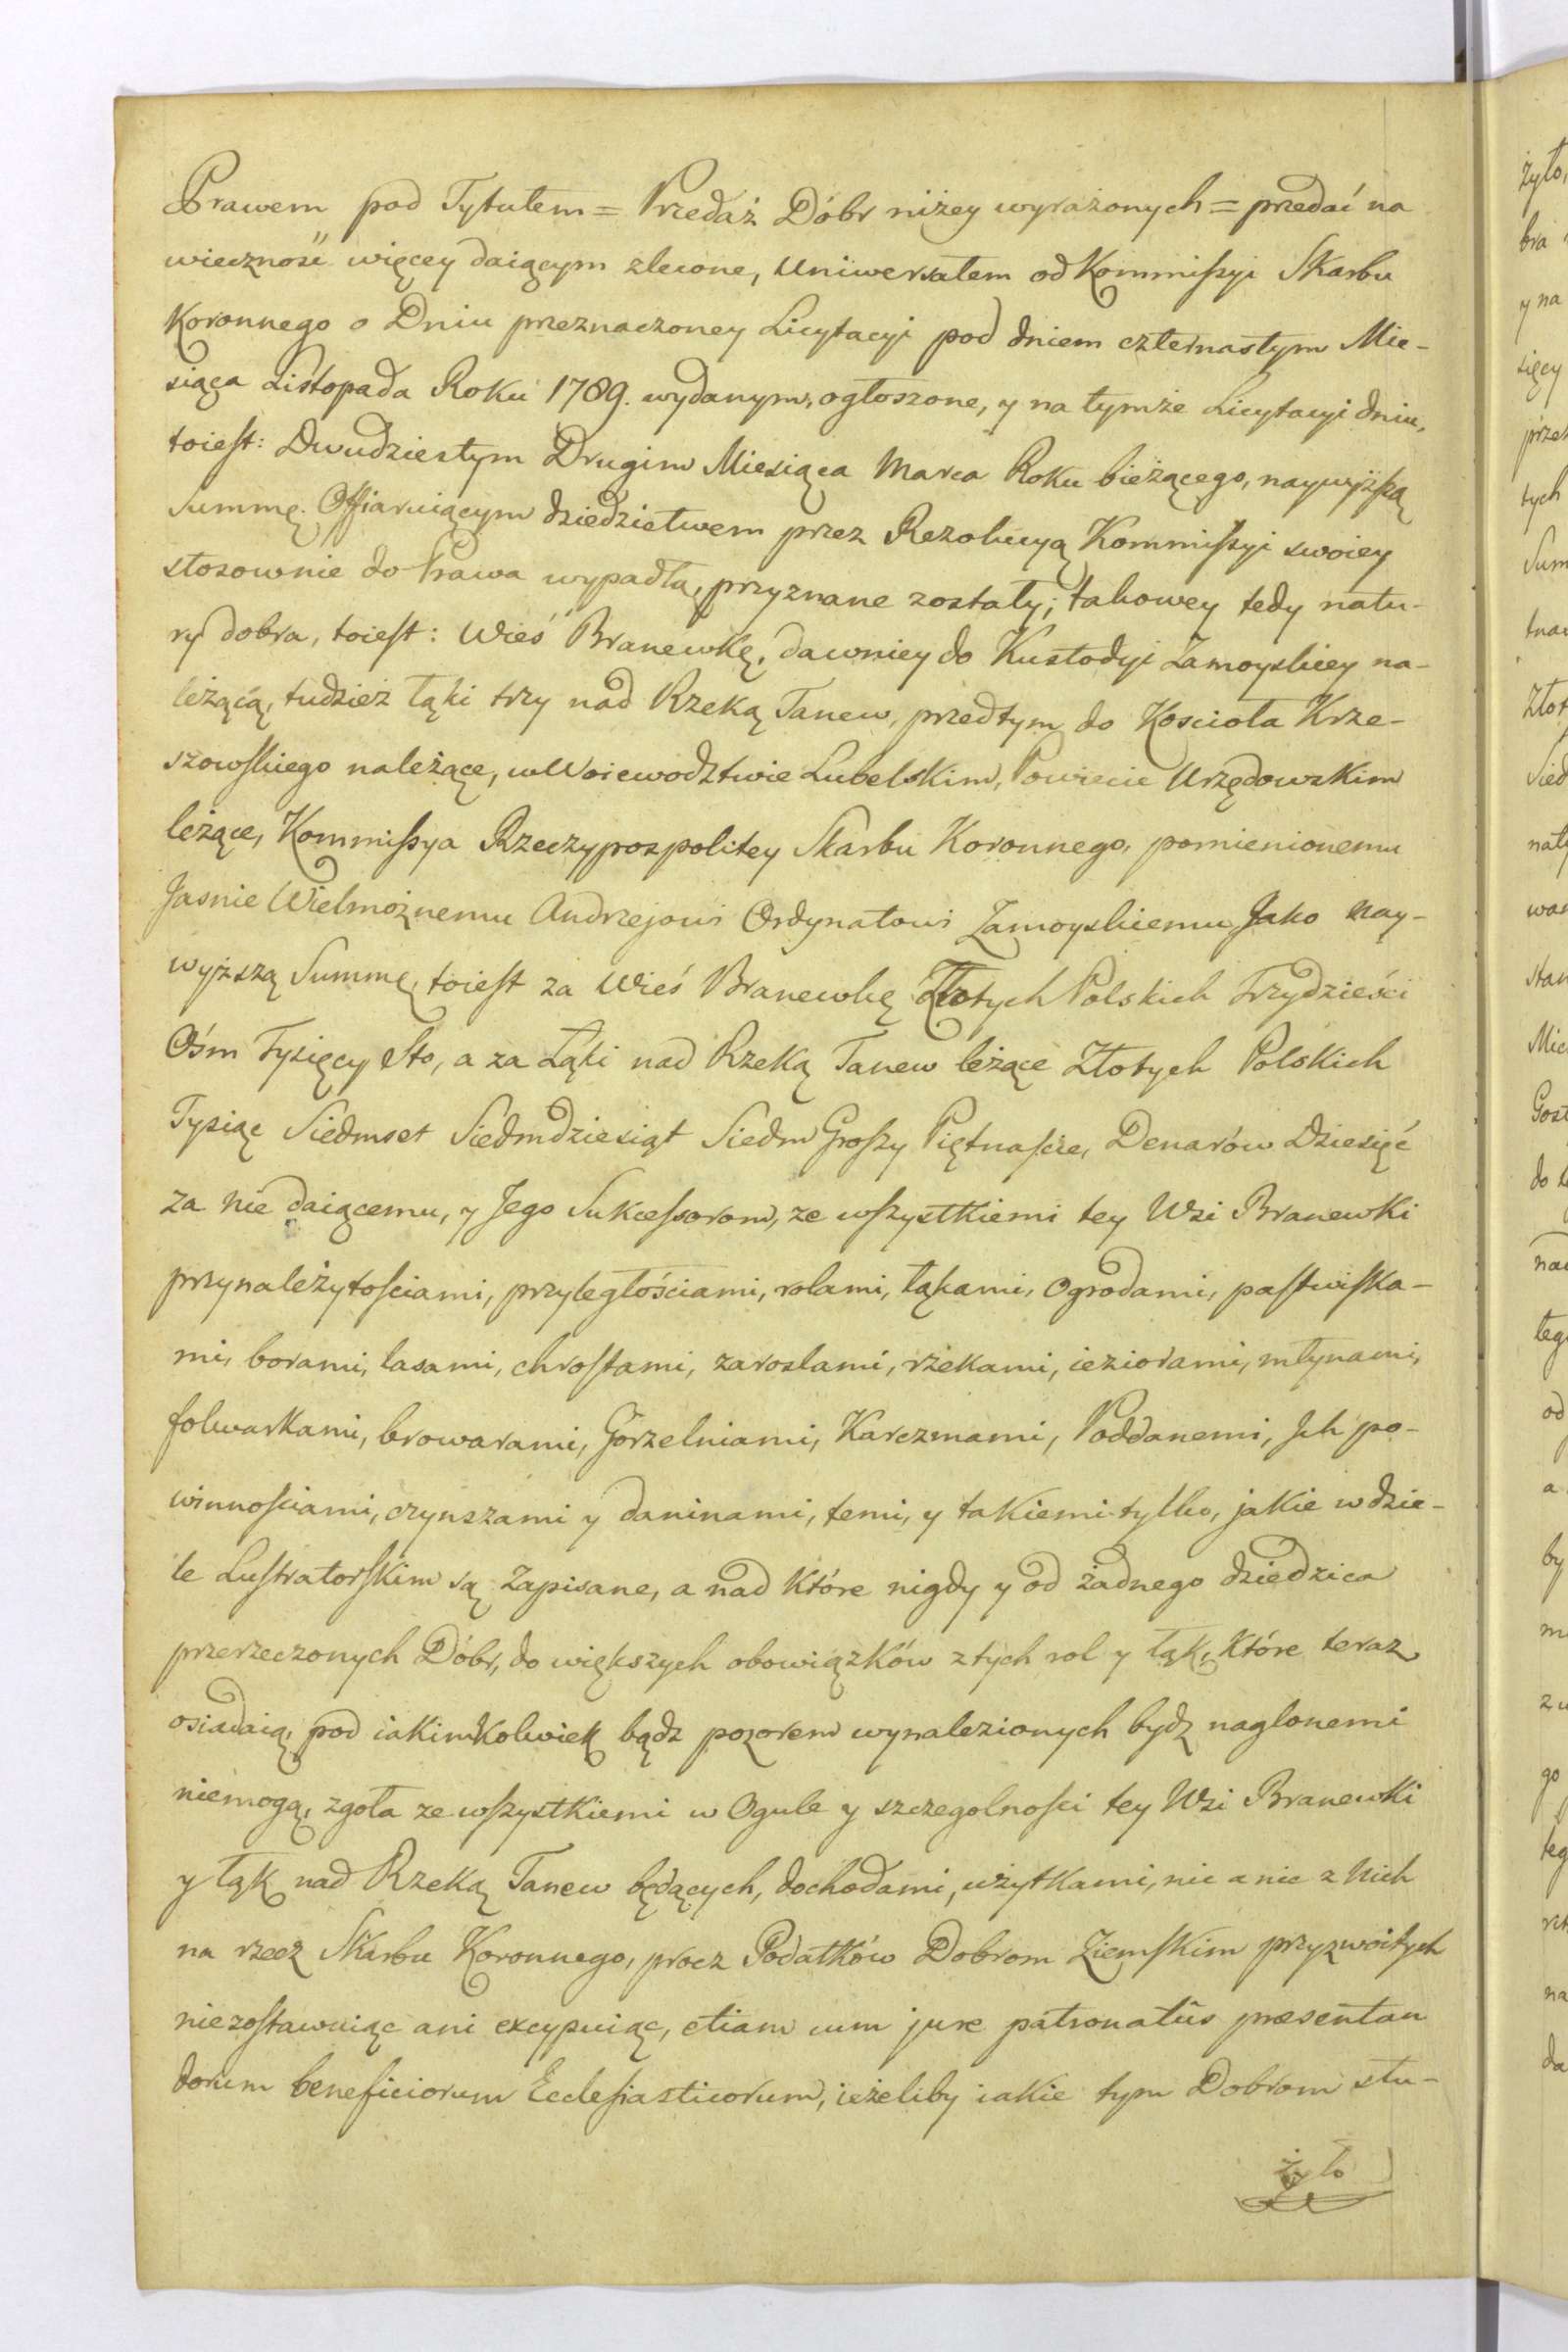 Prawem pod Tytułem = Przedaż Dóbr niżey wyrażonych = przedać na
wieczność więcey daiącym zlecone, Uniwersałem od Kommißyi Skarbu
Koronnego o Dniu przeznaczoney Licytacyi pod dniem czternastym Mie-
siąca Listopada Roku 1789. wydanym, ogłoszone, y na tymże Licytacyi dniu,
toiest: Dwudziestym Drugim Miesiąca Marca Roku bieżącego, naywyższą
Summę Offiaruiącym dziedzictwem przez Rezolucyą Kommißyi swoiey
stosownie do Prawa wypadłą, przyznane zostały; takowey tedy natu-
ry dobra, toiest: Wieś Branewkę, dawniey do Kustodyi Zamoyskiey na-
leżącą, tudzież łąki trzy nad Rzeką Tanew, przedtym do Kościoła Krze-
szowskiego należące, w Woiewodztwie Lubelskim, Powiecie Urzędowskim
leżące, Kommißya Rzeczypospolitey Skarbu Koronnego, pomienionemu
Jasnie Wielmożnemu Andrzejowi Ordynatowi Zamoyskiemu Jako nay-
wyższą Summę, toiest za Wieś Branewkę Złotych Polskich Trzydzieści
Ośm Tysięcy Sto, a za Łąki nad Rzeką Tanew leżące Złotych Polskich
Tysiąc Siedmset Siedmdziesiąt Siedm Groszy Piętnaście, Denarów Dziesięć
za nie daiącemu, y Jego Sukceßorom, ze wszystkiemi tey Wsi Branewki
przynależytościami, przyległościami, rolami, łąkami, Ogrodami, pastwiska-
mi, borami, lasami, chrostami, zaroslami, rzekami, ieziorami, młynami,
folwarkami, browarami, Gorzelniami, Karczmami, Poddanemi, Jch po-
winnościami, czynszami y daninami, temi, y takiemi tylko, jakie w dzie-
le Lustratorskim są Zapisane, a nad które nigdy y od żadnego dziedzica
przerzeczonych Dóbr, do większych obowiązków z tych rol y łąk, które teraz
osiadaią, pod iakimkolwiek bądz pozorem wynalezionych bydz naglonemi
niemogą, zgoła ze wszystkiemi w Ogule y szczegolności tey Wsi Branewki
y łąk nad Rzeką Tanew będących, dochodami, użytkami, nic a nic z Nich
na rzecz Skarbu Koronnego, procz Podatków Dobrom Ziemskim przyzwoitych
niezostawuiąc ani excypuiąc, etiam cum jure patronatûs præsentan
dorum beneficiorum Ecclesiasticorum, ieżeliby iakie tym Dobrom słu-
żyło
żyło,
bra
y na
sięcy
tych
Sum
Złot
Sied
wan
stan
do
od
a
by
go
na
da